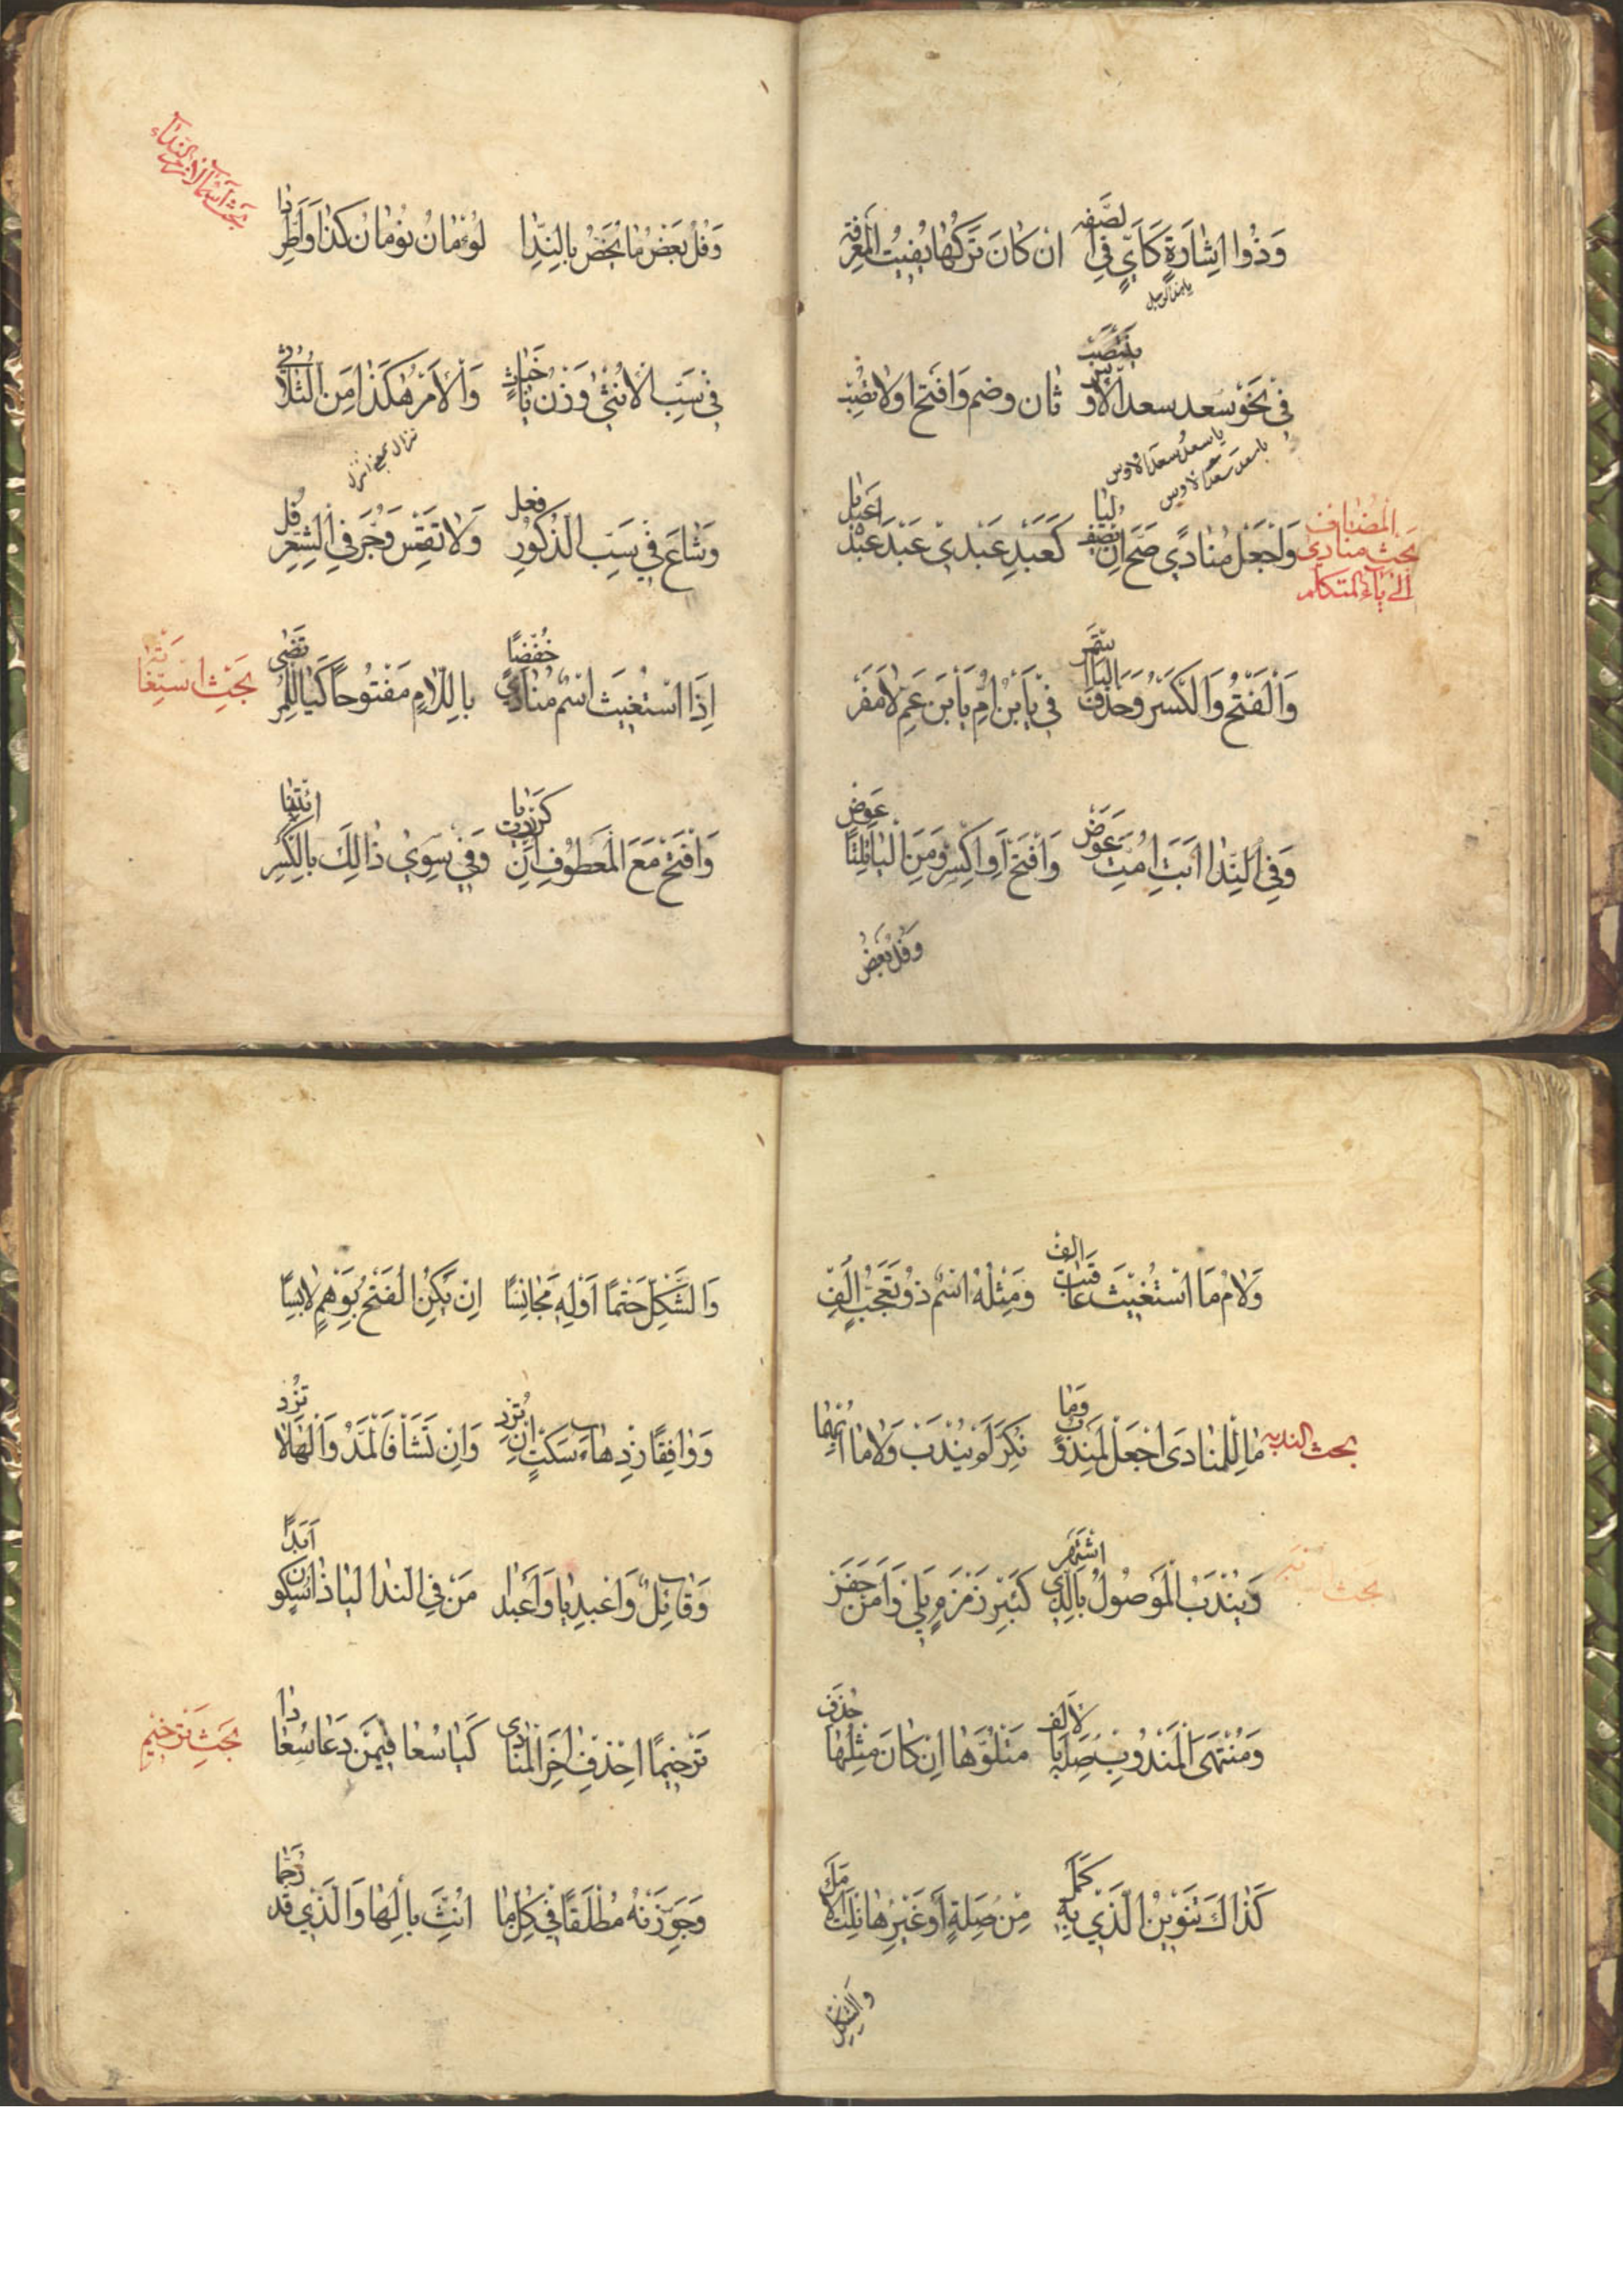 وَذُوا اِشَارَةٍ كَاَيٍّ فِي الصِّفَه اِنْ كَانَ تَرْكُهَا يُفِيتُ الْمَعْرِفَة
يا هذا الرجل
فِي نَحْوِ سَعد سعد الْاَوْسِ يَنْتَصِبْ ثَان وضم وَافْتَحْ اولا تُصِبْ
يا سعدُ سعدَ الاوس
يا سعدَ سعدَ الاوس
بحث منادي المضاف الى ياء المتكلم
وَاجْعَلْ مُنَادًي صَحَّ اِنْ يُضَفْ لِيَا كَعَبْدِ عَبْدِيْ عَبْدَ عَبْدَا عَبْدِيَا
وَالْفَتْحُ وَالْكَسْرُ وَحَذْفُ الْيَا اسْتَقَر فِيْ يَا بْنَ اُمِّ يَا بْنَ عَمِّ لَا مَفَرْ
وَفِي النِّدَا اَبَتِ اُمَّتِ عَرَضْ وَافْتَحْ اَوِ اكْسِرْ وَمِنَ الْيَا التَّا عِوَضْ
وَفُلُ بَعْضُ
بحث اسماء لازمت النداء
وَفُلُ بَعْضُ مَا يُخَصُّ بِالنِّدَا لُوْمَانُ نَوْمَانُ كَذَا وَاطَّرَدَا
فِيْ سَبِّ الْاُنْثَى وَزْنُ يَا خَبَاثِ وَالْاَمْرُ هٰكَذَا مِنَ الثُّلَاثِي
نزال بمعنى انزل
وَشَاعَ فِيْ سَبِّ الذُّكُورِ فُعَلُ وَلَا تَقِسْ وَجُرَّ فِي الشِّعْرِ فُلُ
بَحْثِ اسْتِغَاثَه
اِذَا اسْتُغِيثَ اسْمٌ مُنَادًي خُفِضَا بِاللَّامِ مَفْتُوحاً كَيَا لَلْمُرْتَضَى
وَافْتَحْ مَعَ الْمَعْطُوفِ اِنْ كَرَّرْتَ يَا وَفِيْ سِوَيْ ذَالِكَ بِالْكَسْرِ ائْتِيَا
وَلَامُ مَا اسْتُغِيْثَ عَاقَبَتْ اَلِفْ وَمِثْلُهُ اسْمٌ ذُو تَعَجُّبٍ اُلِفْ
بحث الندبه
مَا لِلْمُنَادَى اجْعَلْ لِمَنْدُوبٍ وَمَا نُكِّرَ لَمْ يُنْدَبْ وَلَا مَا اُبْهِمَا
وَيُنْدَبُ الْمَوْصُولُ بِالَّذِي اشْتَهَر كَبِئْرِ زَمْزَمٍ يَلِيْ وَامَنْ حَفَرْ
وَمُنْتَهَى الْمَنْدُوبِ صِلْهُ بِالْاَلِف مَتْلُوُّهَا اِنْ كَانَ مِثْلَهَا حُذِفْ
كَذَاكَ تَنْوِيْنُ الَّذِيْ بِهِ كَمَلْ مِنْ صِلَةٍ اَوْ غَيْرِهَا نِلْتَ الْاَمَلْ
وَالشَّكْلَ
وَالشَّكْلَ حَتْمًا اَوْلِهِ مُجَانِسًا اِنْ يَكُنِ الْفَتْحُ بِوَهْمٍ لَابِسًا
وَوَاقِفًا زِدْ هَاءَ سَكْتٍ اِنْ تُرِدْ وَاِنْ تَشَأْ فَالْمَدُّ وَالْهَا لَا تَزِدْ
وَقَائِلٌ وَاعَبْدِيَا وَاعَبْدَا مَنْ فِي النِّدَا الْيَا ذَا سُكُونٍ اَبْدًا
بَحْثِ تَرْخِيْمِ
تَرْخِيمًا احْذِفْ اٰخِرَ الْمُنَادَى كَيَا سُعَا فِيْمَنْ دَعَا سُعَادَا
وَجَوِّزَنْهُ مُطْلَقًا فِيْ كُلِّ مَا اُنِّثَ بِالْهَا وَالَّذِيْ قَدْ رُخِّمَا